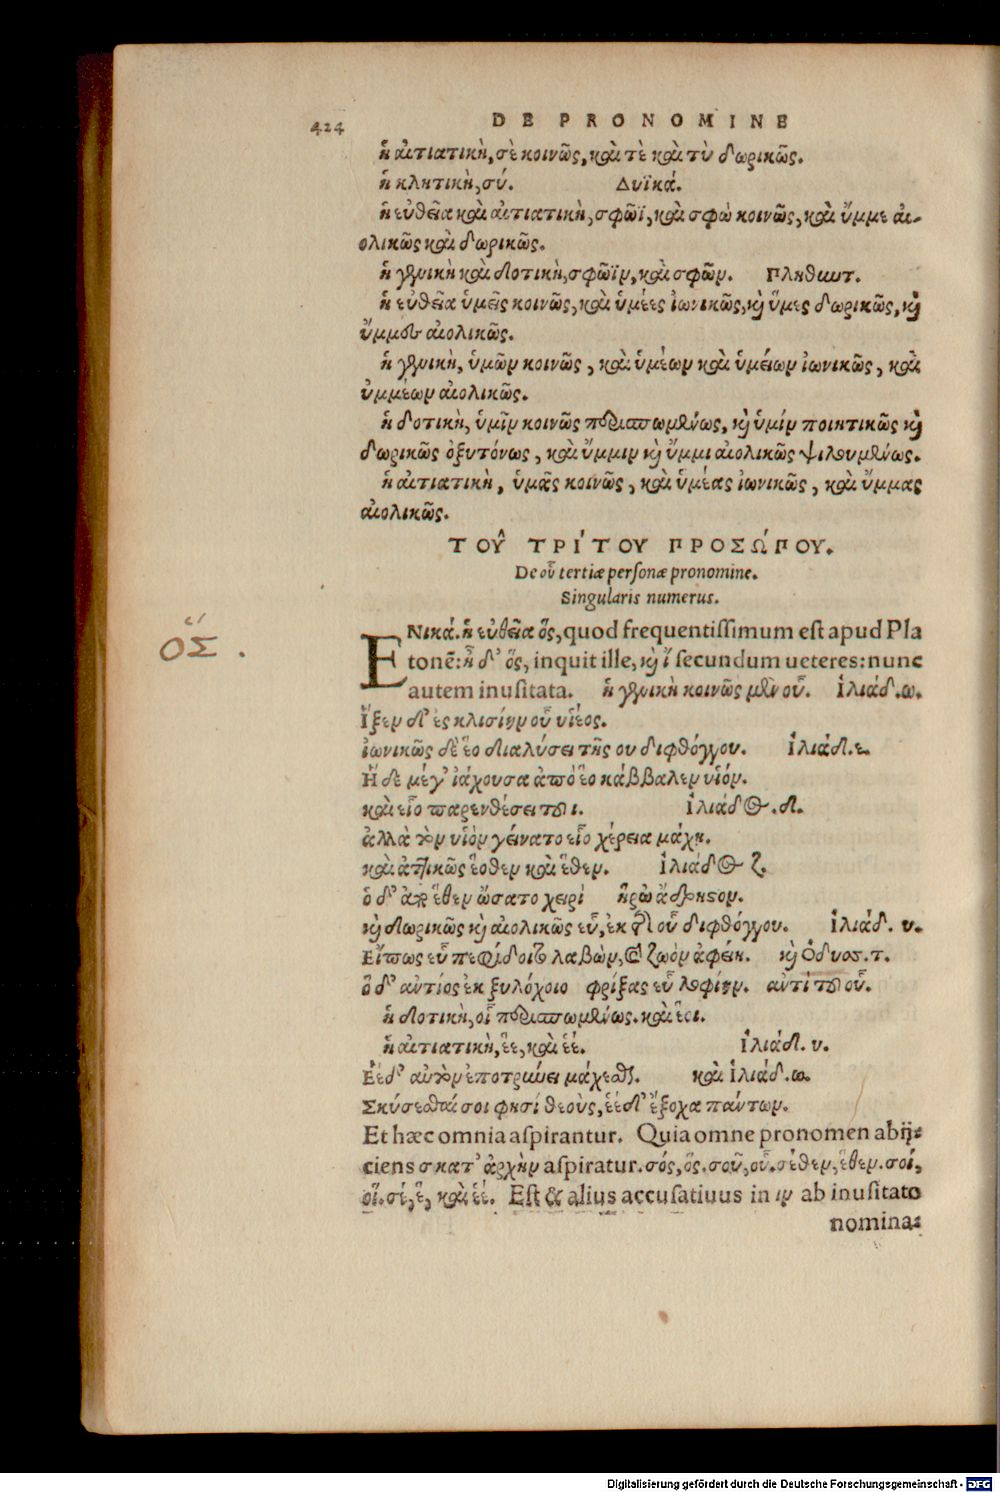 424 DE PRONOMINE
ἡ αἰτιατικὴ, σὲ κοινῶς, καὶ τὲ καὶ τὺ δωρικῶς.
ἡ κλητικὴ, σύ. Δυϊκά.
ἡ εὐθεῖα καὶ αἰτιατικὴ, σφῶϊ, καὶ σφὼ κοινῶς, καὶ ὔμμε αἰ-
ολικῶς καὶ δωρικῶς.
ἡ γενικὴ καὶ δοτικὴ, σφῶϊν, καὶ σφῶν. Πληθωτ.
ἡ εὐθεῖα ὑμεῖς κοινῶς, καὶ ὑμέες ἰωνικῶς, καὶ ὕμες δωρικῶς, καὶ
ὔμμες αἰολικῶς.
ἡ γενικὴ, ὑμῶν κοινῶς, καὶ ὑμέων καὶ ὑμείων ἰωνικῶς, καὶ
ὑμμέων αἰολικῶς.
ἡ δοτικὴ, ὑμῖν κοινῶς περισπωμένως, καὶ ὑμίν ποιητικῶς καὶ
δωρικῶς ὀξυτόνως, καὶ ὔμμιν καὶ ὔμμι αἰολικῶς ψιλουμένως.
ἡ αἰτιατικὴ, ὑμᾶς κοινῶς, καὶ ὑμέας ἰωνικῶς, καὶ ὔμμας
αἰολικῶς.
ΤΟΥ͂ ΤΡΙ´ΤΟΥ ΠΡΟΣΩ´ΠΟΥ.
De οὗ tertiæ personæ pronomine.
Singularis numerus.
ΕΝικά. ἡ εὐθεῖα ὅς, quod frequentissimum est apud Pla
tonē: ἦ δ' ὅς, inquit ille, καὶ ἵ secundum ueteres: nunc
autem inusitata. ἡ γενικὴ κοινῶς μὲν οὗ. Ἰλιάδ. ω.
ΟΣ .
Ἷξεν δ' ἐς κλισίην οὗ υἱέος.
ἰωνικῶς δὲ ἕο διαλύσει τῆς ου διφθόγγου. Ἰλιάδ. ε.
Ἡ δὲ μέγ' ἰάχουσα ἀπὸ ἕο κάββαλεν υἱόν.
καὶ εἷο παρενθέσει τοῦ ι. Ἰλιάδος. δ.
ἀλλὰ τὸν υἱὸν γείνατο εἷο χέρεια μάχῃ.
καὶ ἀττικῶς ἕοθεν καὶ ἕθεν. Ἰλιάδος ζ.
ὁ δ' ἀπὸ ἕθεν ὤσατο χειρὶ ἥρω ἄδρηστον.
καὶ δωρικῶς καὶ αἰολικῶς εὗ, ἐκ τῆς οὗ διφθόγγου. Ἰλιάδ. υ.
Εἴπως εὗ πεφίδοιτο λαβὼν, καὶ ζωὸν ἀφείη. καὶ Ὀδυσσ. τ.
ὃ δ' ἀντίος ἐκ ξυλόχοιο φρίξας εὗ λοφίην. ἀντὶ τοῦ οὗ.
ἡ δοτικὴ, οἷ περισπωμένως. καὶ ἑοι.
ἡ αἰτιατικὴ, ἕ, καὶ ἑέ. Ἰλιάδ. υ.
Ἑὲ δ' αὐτὸν ἐποτρύνει μάχεσθαι. καὶ Ἰλιάδ. ω.
Σκύσεσθαί σοι φησί θεοὺς, ἑὲ δ' ἔξοχα πάντων.
Et hæc omnia aspirantur. Quia omne pronomen abij-
ciens σ κατ' ἀρχὴν aspiratur. σός, ὅς. σοῦ, οὗ. σέθεν, ἕθεν. σοί,
οἷ. σέ, ἕ, καὶ ἑέ. Est & alius accusatiuus in ιν ab inusitato
nomina-
Digitalisierung gefördert durch die Deutsche Forschungsgemeinschaft - DFG